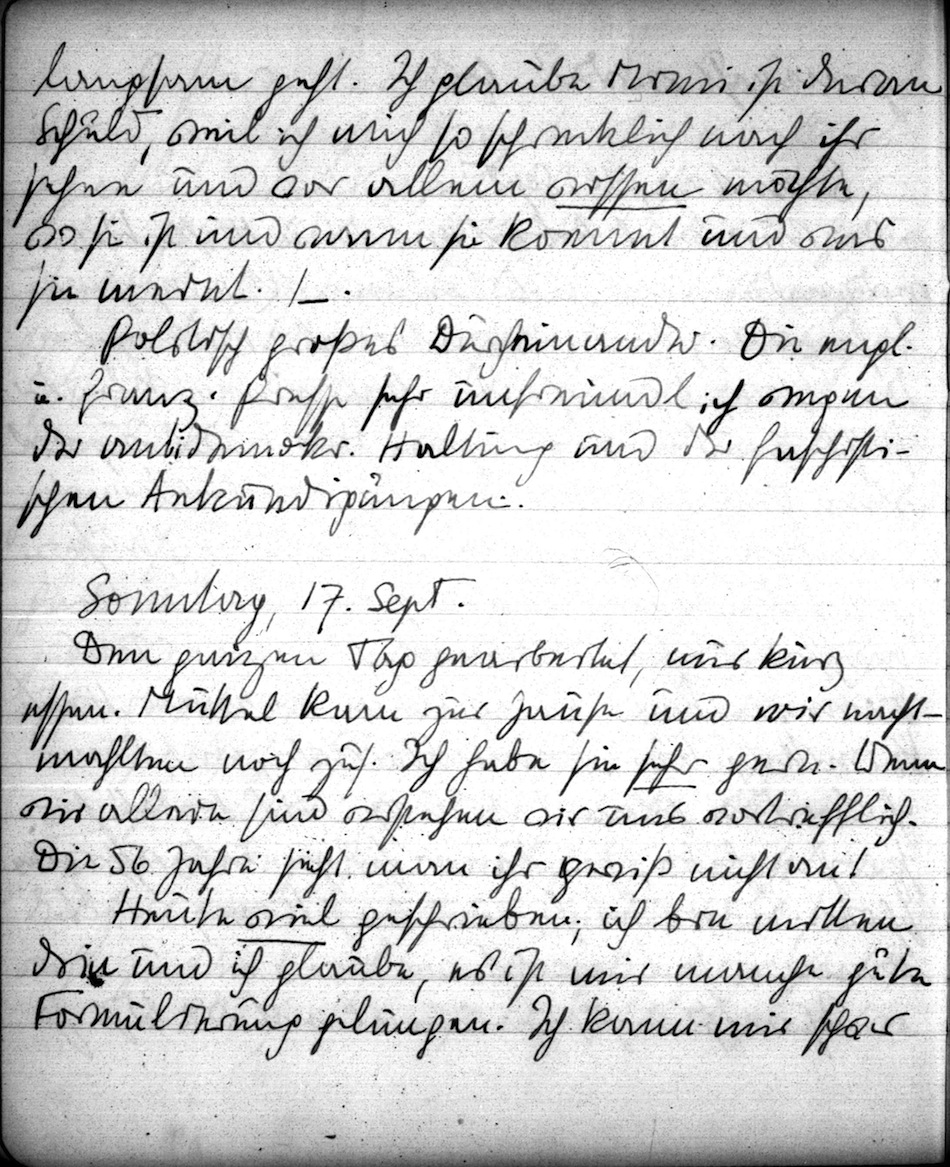 langsam geht. Ich glaube Mami ist daran
Schuld, weil ich mich so schrecklich nach ihr
sehne und vor allem wissen möchte,
wo sie ist und wann sie kommt und was
sie macht. |_.
Politisch großes Durcheinander. Die engl.
u. franz. Presse sehr unfreundlich wegen
der antidemokr. Haltung und der faschisti-
schen Ankündigungen.
Sonntag, 17. Sept.
Den ganzen Tag gearbeitet, nur kurz
essen. Muttel kam zur Jause und wir nacht-
mahlten noch zus. Ich habe sie sehr gern. Wenn
wir allein sind verstehen wir uns vortrefflich.
Die 56 Jahre sieht man ihr gewiß nicht an!
Heute viel geschrieben, ich bin mitten
drin und ich glaube, es ist mir manche gute
Formulierung gelungen. Ich kann mir schwer